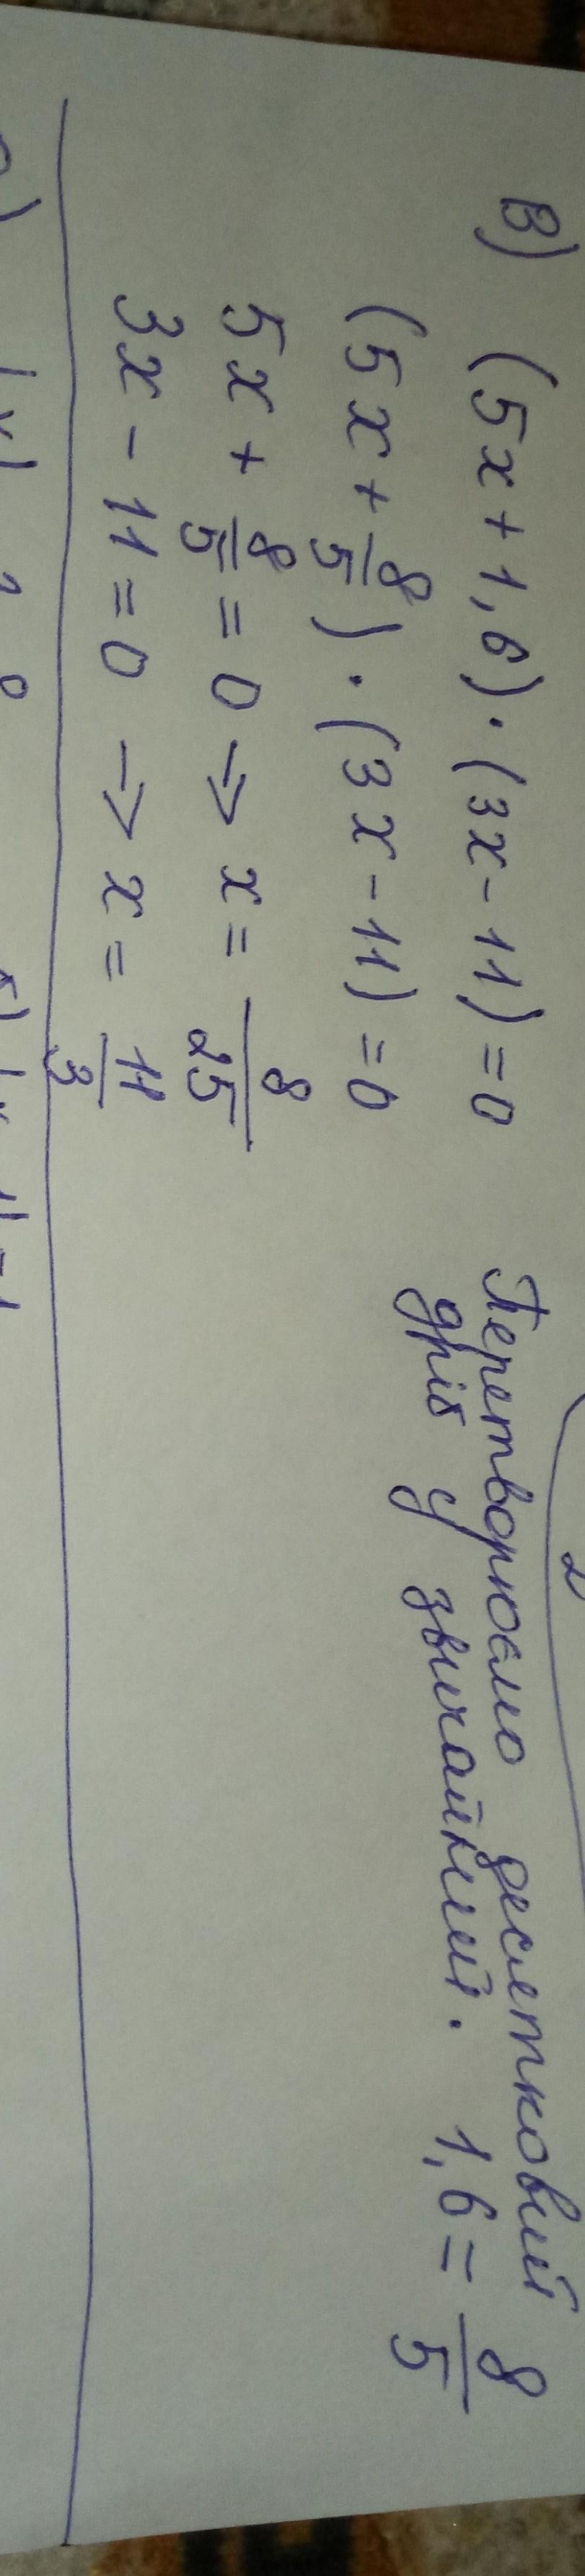 в) (5x + 1,6) · (3x - 11) = 0
Перетворюємо десятковий
дріб у звичайний. 1,6 = 8/5
(5x + 8/5) · (3x - 11) = 0
5x + 8/5 = 0 → x = 8/25
3x - 11 = 0 → x = 11/3